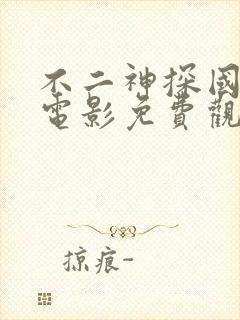 不二神探國
電影免費觀
掠痕-